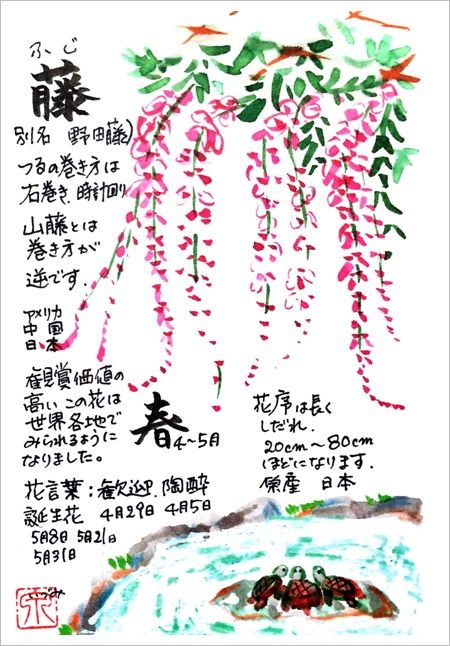 ふじ
藤
別名 野田藤)
つるの巻き方は
右巻き、時計回り
山藤とは
巻き方が
逆です.
アメリカ
中国
日本
観賞価値の
高いこの花は
世界各地で
みられるように
なりました。
春
4~5月
花序は長く
しだれ.
20cm~80cm
ほどになります.
原産 日本
花言葉:歓迎.陶酔
誕生花 4月29日 4月5日
5月8日 5月21日
5月31日